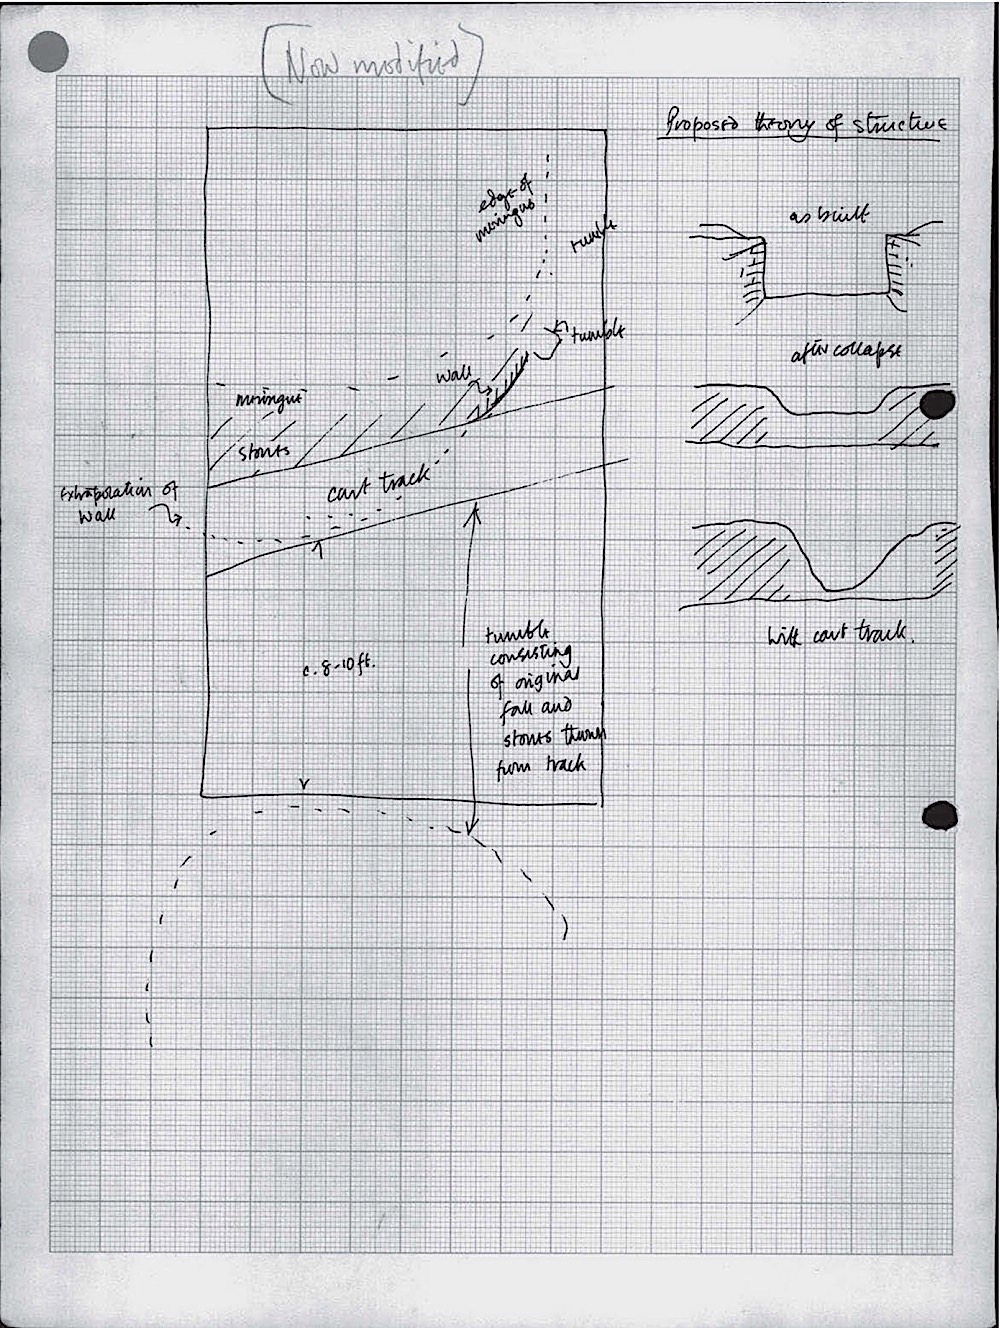 (Now modified)
Proposed theory of structure
as built
after collapse
with cart track.
edge of
tumble
tumble
wall
stones
cart track
Extrapolation of
wall
c. 8-10ft.
tumble
consisting
of original
fall and
stones thrown
from track